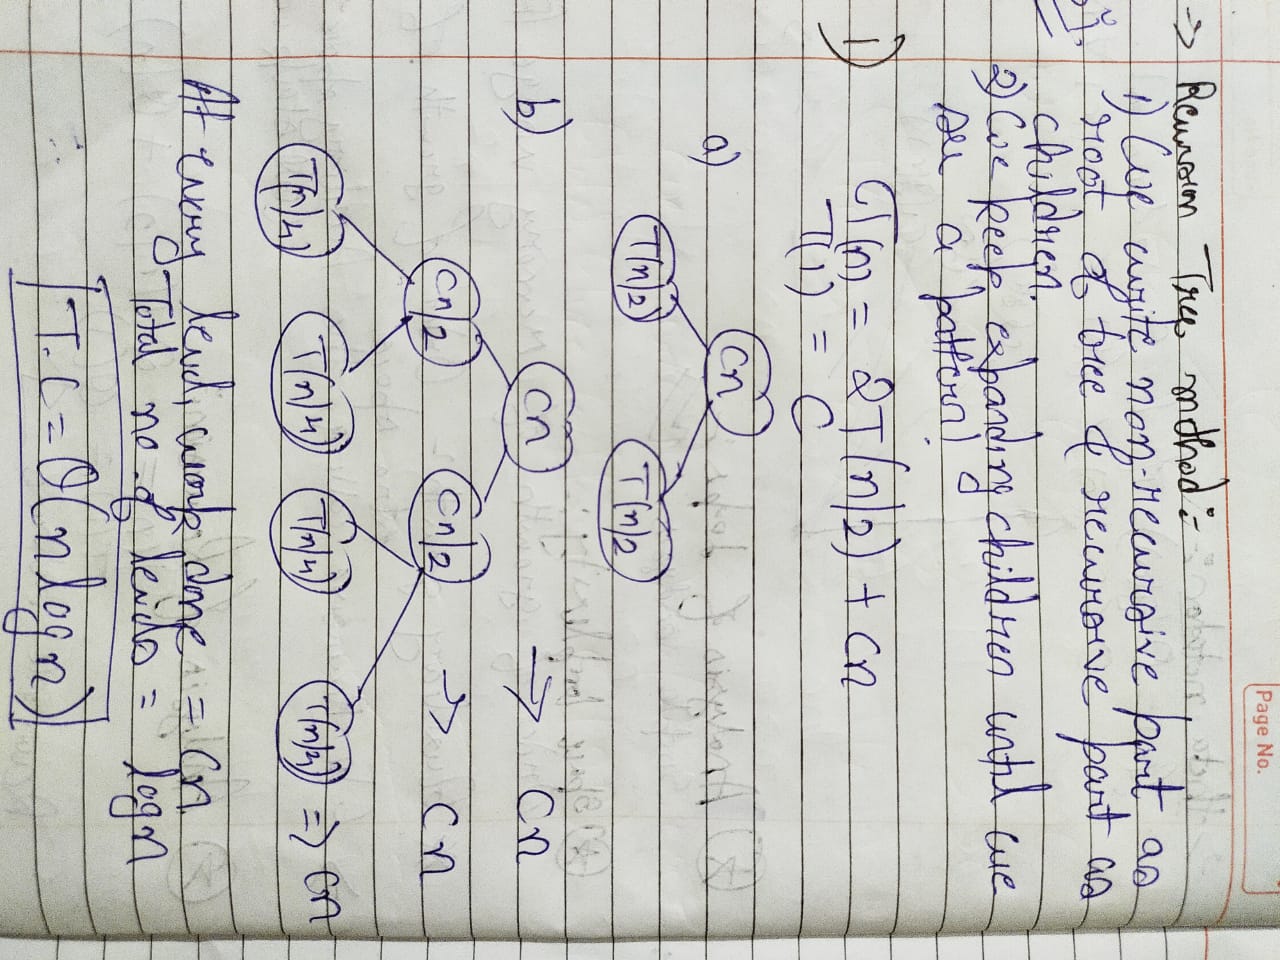 Page No.
→ Recursion Tree method :-
1) We write non-recursive part as
root of tree & recursive part as
children.
2) We keep expanding children until we
see a pattern)
1) T(n) = 2T(n/2) + Cn
T(1) = C
a)
Cn
T(n/2) T(n/2
b)
Cn → Cn
Cn/2 Cn/2 → Cn
T(n/4) T(n/4) T(n/4) T(n/4) => Cn
At every level, work done = Cn
Total no. of levels = logn
T.C = θ(n logn)